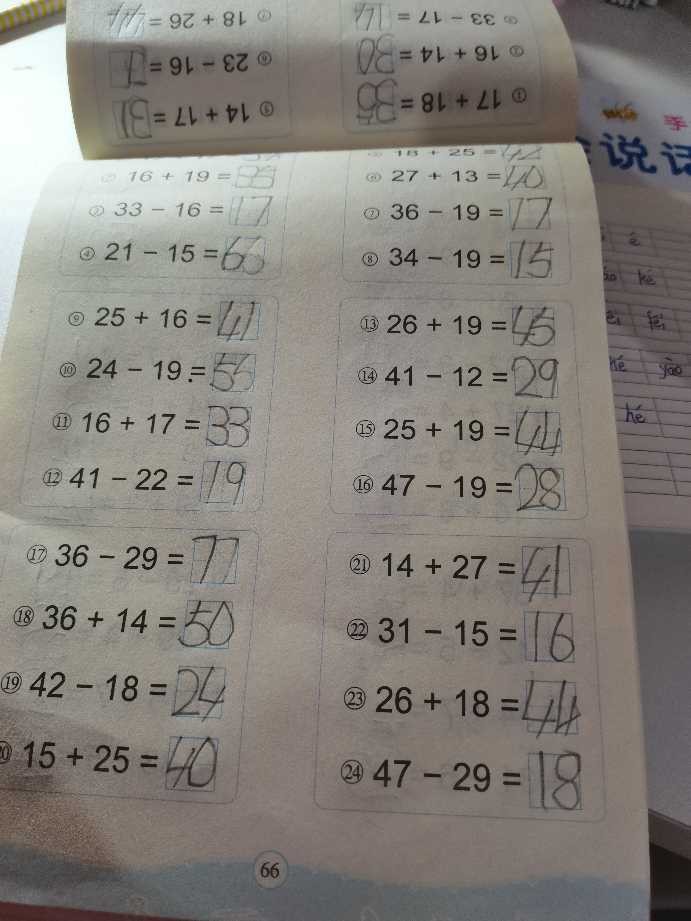 ⑦ 18 + 26 = 44
⑥ 23 − 16 = 7
⑤ 14 + 17 = 31
③ 33 − 17 =
② 16 + 14 = 30
① 17 + 18 = 35
② 16 + 19 = 35
③ 33 − 16 = 17
④ 21 − 15 = 66
18 + 25 =
⑥ 27 + 13 = 40
⑦ 36 − 19 = 17
⑧ 34 − 19 = 15
⑨ 25 + 16 = 41
⑩ 24 − 19 = 55
⑪ 16 + 17 = 33
⑫ 41 − 22 = 19
⑬ 26 + 19 = 45
⑭ 41 − 12 = 29
⑮ 25 + 19 = 44
⑯ 47 − 19 = 28
⑰ 36 − 29 = 77
⑱ 36 + 14 = 50
⑲ 42 − 18 = 24
⑳ 15 + 25 = 40
㉑ 14 + 27 = 41
㉒ 31 − 15 = 16
㉓ 26 + 18 = 44
㉔ 47 − 29 = 18
66
说话
é
ké
hé
yào
hé